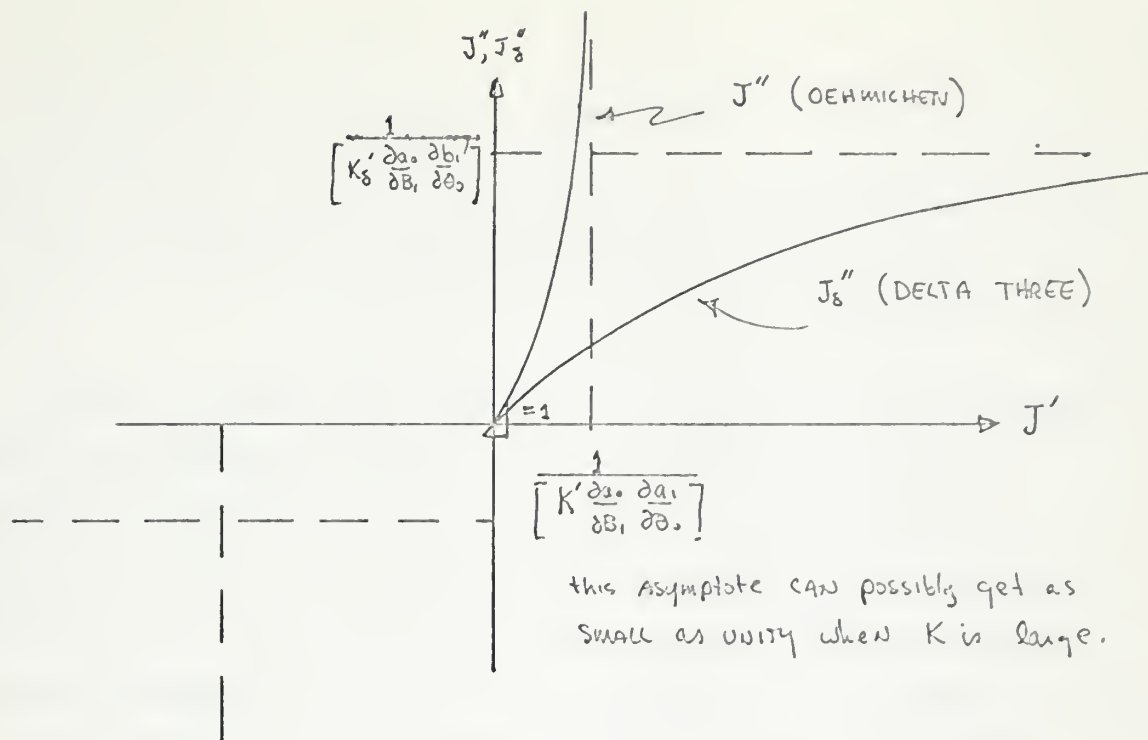 J″, J″δ
J″ (OEHMICHEN)
1
[K′δ ∂a₀/∂B₁ ∂b₁/∂θ₀]
J″δ (DELTA THREE)
=1
J′
1
[K′ ∂a₀/∂B₁ ∂a₁/∂θ₀]
this Asymptote CAN possibly get as
SMALL as UNITY when K is large.